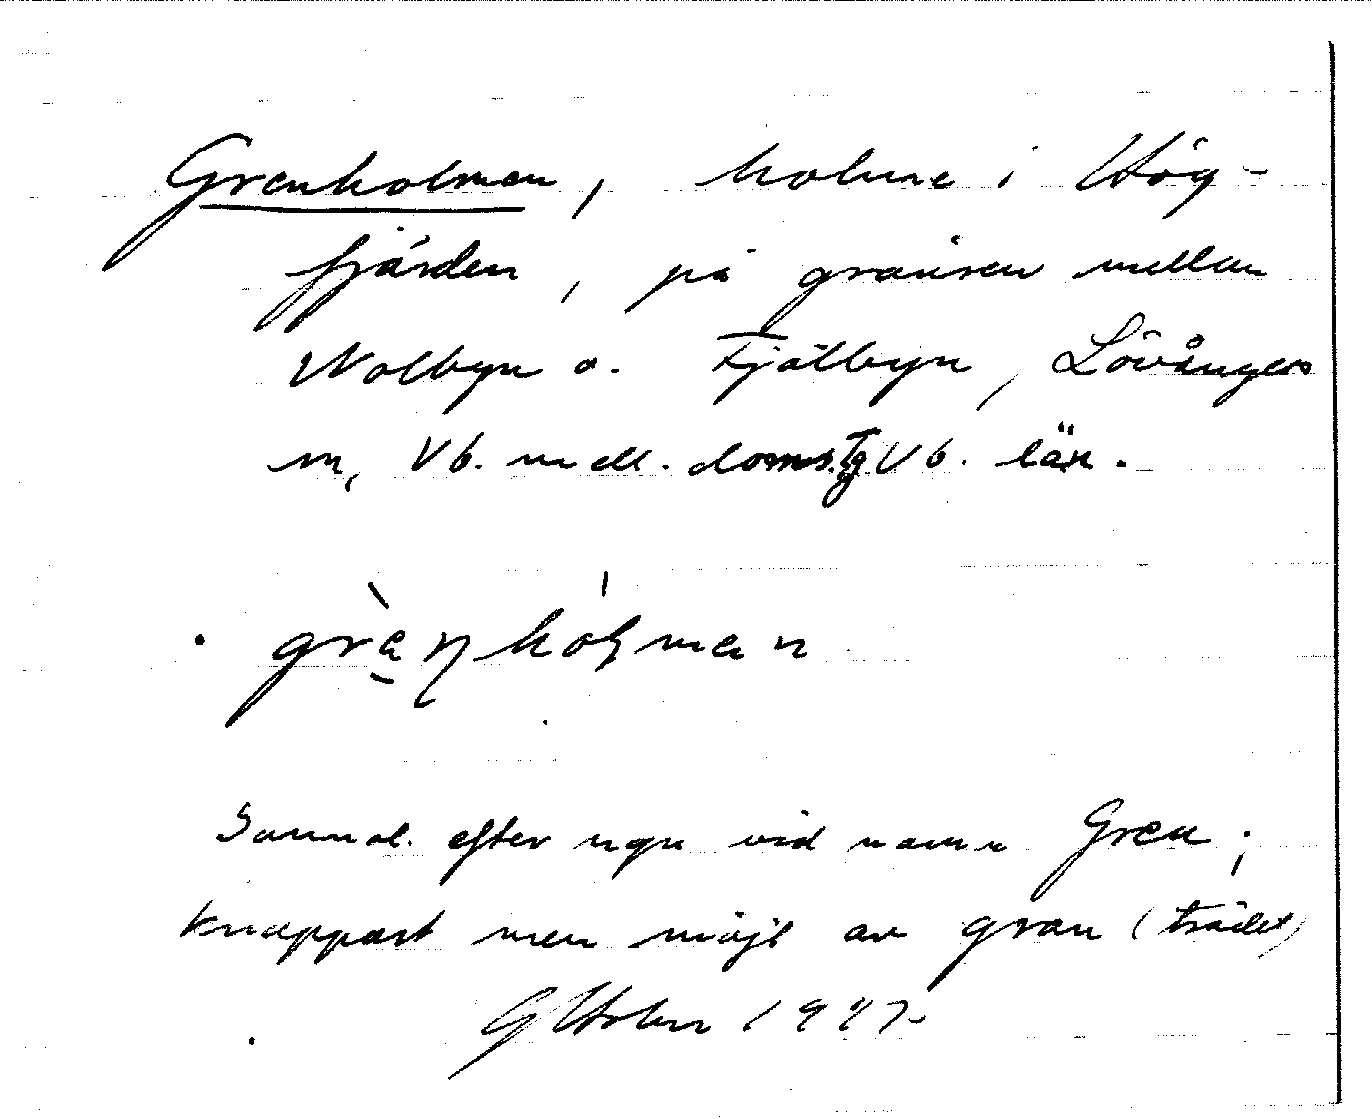 Grenholmen, holme i Hög-
fjärden, på gränsen mellan
Nolbyn o. Fjälbyn, Lövångers
sn, Vb. mell. doms. Tg Vb. län.
grènhólmen
Sannol. efter ngn vid namn Gren;
knappast men möjl av gran (trädet)
G Holm 1947